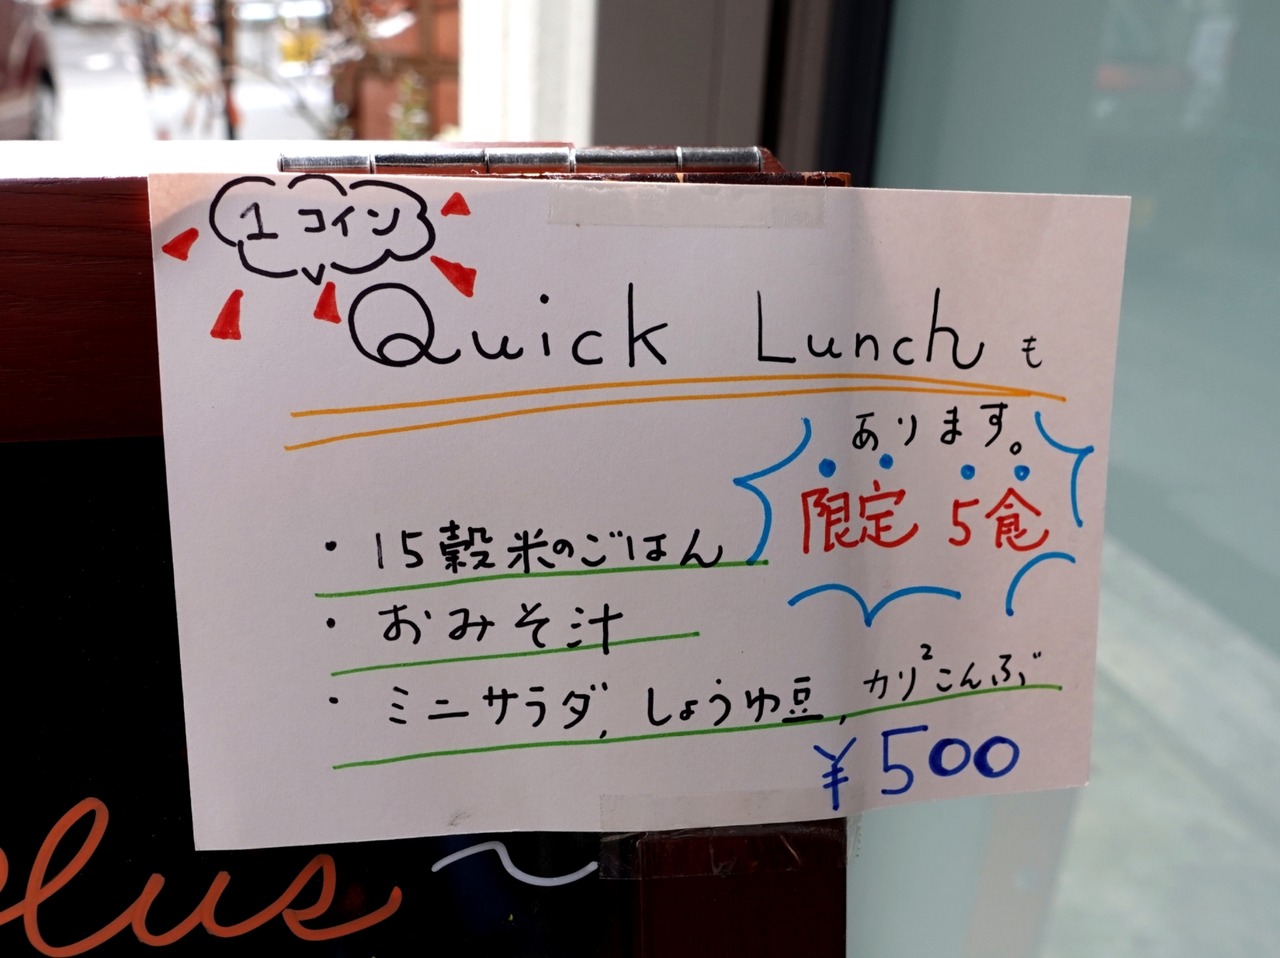 1コイン
Quick Lunch も
あります。
限定 5食
・15穀米のごはん
・おみそ汁
・ミニサラダ, しょうゆ豆, カリ²こんぶ
¥500
lus